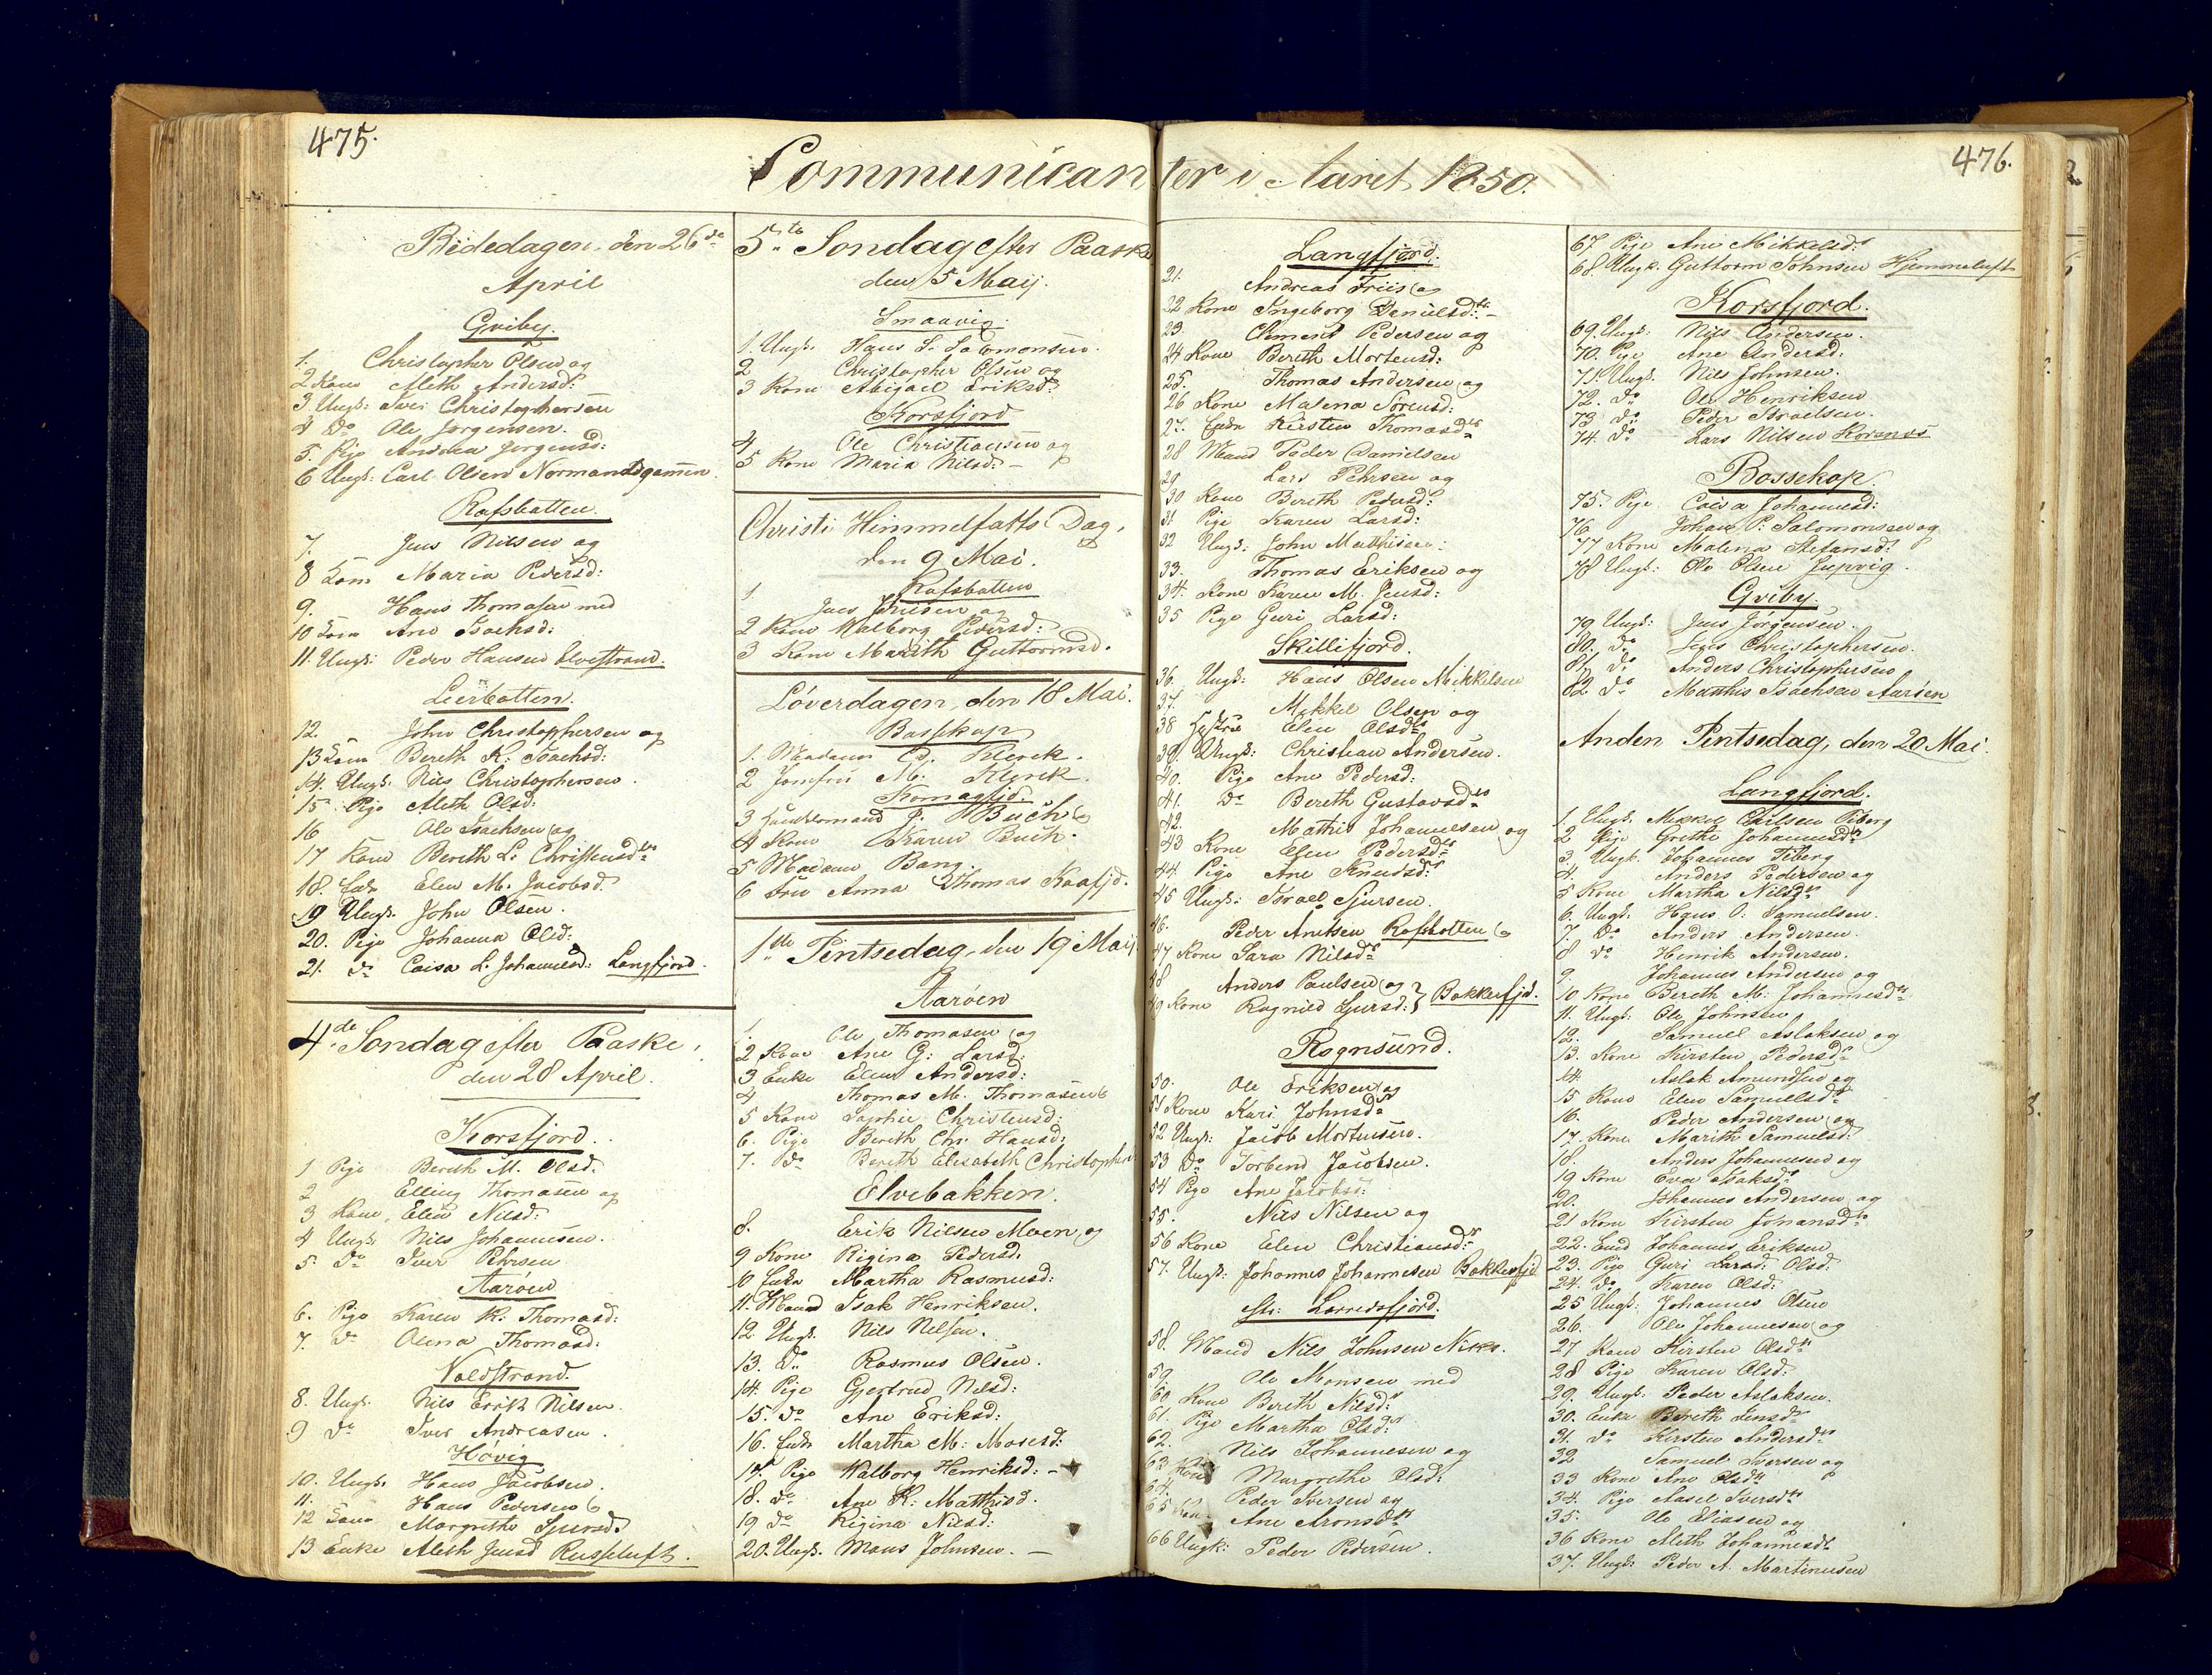 475.
Communicanter i Aaret 1850.
476.
Bededagen, den 26de
April
Qviby.
1. Christopher Olsen og
2 Kone Aleth Andersd:
3 Ungk: Iver Christophersen
4 Do Ole Jørgensen.
5. Pige Andrea Jørgensd:
6 Ungk: Carl Olsen Normandsgamen.
Rafsbotten.
7. Jens Nilsen og
8 Kone Maria Pedersd:
9. Hans Thomasen med
10 Kone Ane Isachsd:
11. Ungk: Peder Hansen Elvestrand.
Leerbotten.
12. John Christophersen og
13 Kone Bereth K. Isachsd:
14. Ungk: Nils Christophersen.
15 Pige Aleth Olsd:
16 Ole Isachsen og
17 Kone Bereth L. Christensd:
18. Enke Elen M. Jacobsd:
19 Ungk. John Olsen.
20. Pige Johanna Olsd:
21. do Caisa L. Johannesd: Langfjord.
4de Søndag efter Paaske,
den 28 April.
Korsfjord.
1 Pige Bereth M. Olsd:
2 Elling Thomasen og
3 Kone Elen Nilsd:
4 Ungk Nils Johannesen.
5. Do Iver Pehrsen
Aarøen
6. Pige Karen K. Thomasd:
7. Do Olena Thomasd:
Voldstrand.
8. Ungk. Nils Erik Nilsen.
9 Do Iver Andreasen.
Høvig
10. Ungk. Hans Jacobsen.
11. Hans Pedersen &
12 Kone Margrethe Sjursd.
13 Enke Aleth Jensd Russeluft.
5te Søndag efter Paaske
den 5 Maij.
Smaavig.
1. Ungk. Hans S. Salomonsen.
2 Christopher Olsen og
3 Kone Abigael Eriksd:
Korsfjord
4. Ole Christiansen og
5 Kone Maria Nilsd: –
Christi Himmelfarts Dag,
den 9 Mai.
Rafsbotten
1. Jens Jensen og
2 Kone Walborg Pedersd:
3 Kone Marith Guttormsd.
Løverdagen, den 18 Mai.
Bossekop
1. Madame Klerck.
2 Jomfru M. Klerck.
Komagfjd.
3 Handelsmand J. Buch &
4 Kone Karen Buch.
5 Madame Bang.
6 Fru Anna Thomas Kaafjd.
1ste Pintsedag, den 19 Maij
Aarøen
1. Ole Thomasen og
2 Kone Ane G: Larsd:
3 Enke Elen Andersd:
4 Thomas M. Thomasen &
5 Kone Sophie Christensd:
6. Pige Bereth Chr. Hansd:
7. Do Bereth Elisabeth Christophersd
Elvebakken.
8. Erik Nilsen Moen, og
9 Kone Rigina Pedersd.
10 Enke Martha Rasmusd:
11. Mand Isak Henriksen.
12 Ungk. Nils Nilsen.
13. Do Rasmus Olsen.
14. Pige Gjertrud Nilsd:
15. Do Ane Eriksd:
16. Enke Martha M: Mosesd:
17. Pige Walborg Henriksd: –
18. do Ane K: Matthisd.
19 do Rigina Nilsd:
20. Ungk. Mons Johnsen. –
Langfjord.
21. Andreas Friis og
22 Kone Ingeborg Danielsd: –
23 Clement Pedersen og
24 Kone Bereth Mortensd:
25. Thomas Andersen og
26 Kone Malena Sørensd:
27. Enke Kirsten Thomasd
28 Mand Peder Danielsen
29 Lars Pehrsen og
30 Kone Bereth Pedersd:
31 Pige Karen Larsd:
32 Ungk: John Mathisen.
33. Thomas Eriksen og
34. Kone Karen M. Jensd:
35 Pige Guri Larsd:
Skillefjord.
36. Ungk: Hans Olsen Mikkelsen
37. Mikkel Olsen og
38 Hustru Elen Olsd
39. Ungk: Christian Andersen.
40. Pige Ane Pedersd:
41. Do Bereth Gustavsd
42. Mathis Johannesen og
43 Kone Elen Pedersd
44. Pige Ane Knudsd:
45 Ungk: Israel Sjursen.
46. Peder Antsen Rafsbotten &
47 Kone Sara Nilsd
48 Anders Paulsen og
49 Kone Ragnild Sjursd: } Bakkefjd.
Rognsund.
50. Ole Eriksen og
51 Kone Kari Johnsd
52 Ungk: Jacob Mortensen.
53 Do Torbend Jacobsen.
54 Pige Ane Jacobsd:
55. Nils Nilsen og
56 Kone Elen Christiansd:
57. Ungk: Johannes Johannesen Bakkefjd
St: Lerresfjord.
58. Mand Nils Johnsen
59. Ole Monsen med
60 Kone Bereth Nilsd:
61. Pige Martha Olsd:
62. Nils Johannesen og
63 Kone Margrethe Olsd:
64. Peder Iversen og
65 Kone Ane Aronsd
66 Ungk: Peder Pedersen.
67. Pige Ane Mikkelsd:
68. Ungk. Guttorm Johnsen Hjemmeluft
Korsfjord.
69. Ungk: Nils Andersen.
70. Pige Ane Andersd:
71. Ungk. Nils Johnsen.
72. Do Ole Henriksen
73 Do Peder Israelsen.
74. Do Lars Nilsen Korsnes
Bossekop.
75. Pige Caisa Johannesd:
76 Johan P. Salomonsen og
77 Kone Malena Stefansd:
78 Ungk: Ole Olsen Jupvig.
Qviby.
79 Ungk: Jens Jørgensen.
80. Do Christophersen.
81. Do Anders Christophersen
82 Do Matthis Isachsen Aarøen
Anden Pintsedag, den 20 Mai.
Langfjord.
1. Ungk. Mikkel Carlsen Tiberg
2 Pige Grethe Johannesd
3. Ungk. Johannes Tiberg
4. Anders Pedersen og
5 Kone Martha Nilsd
6. Ungk. Hans O: Samuelsen.
7. Do Anders Andersen.
8 Do Henrik Andersen.
9. Johannes Andersen og
10 Kone Bereth M: Johannesd
11. Ungk: Ole Johnsen
12. Samuel Aslaksen og
13. Kone Kirsten Pedersd
14. Aslak Amundsen og
15 Kone Elen Samuelsd
16. Peder Andersen og
17. Kone Marith Samuelsd:
18. Anders Johannesen og
19 Kone Eva Isaksd
20. Johannes Andersen og
21 Kone Kirsten Johansd
22. Johannes Eriksen
23. Pige Guri Larsd: Olsd:
24. Do Karen Olsd:
25 Ungk: Johannes Olsen
26. Ole Johannesen og
27 Kone Kirsten Olsd
28 Pige Karen Olsd:
29. Ungk: Peder Aslaksen.
30. Enke Bereth Jensd
31. Do Kirsten Andersd
32 Samuel Iversen og
33 Kone Ane Olsd
34. Pige Aasel Iversd
35. Ole Eliasen og
36 Kone Aleth Johannesd
37. Ungk: Peder A. Martinusen